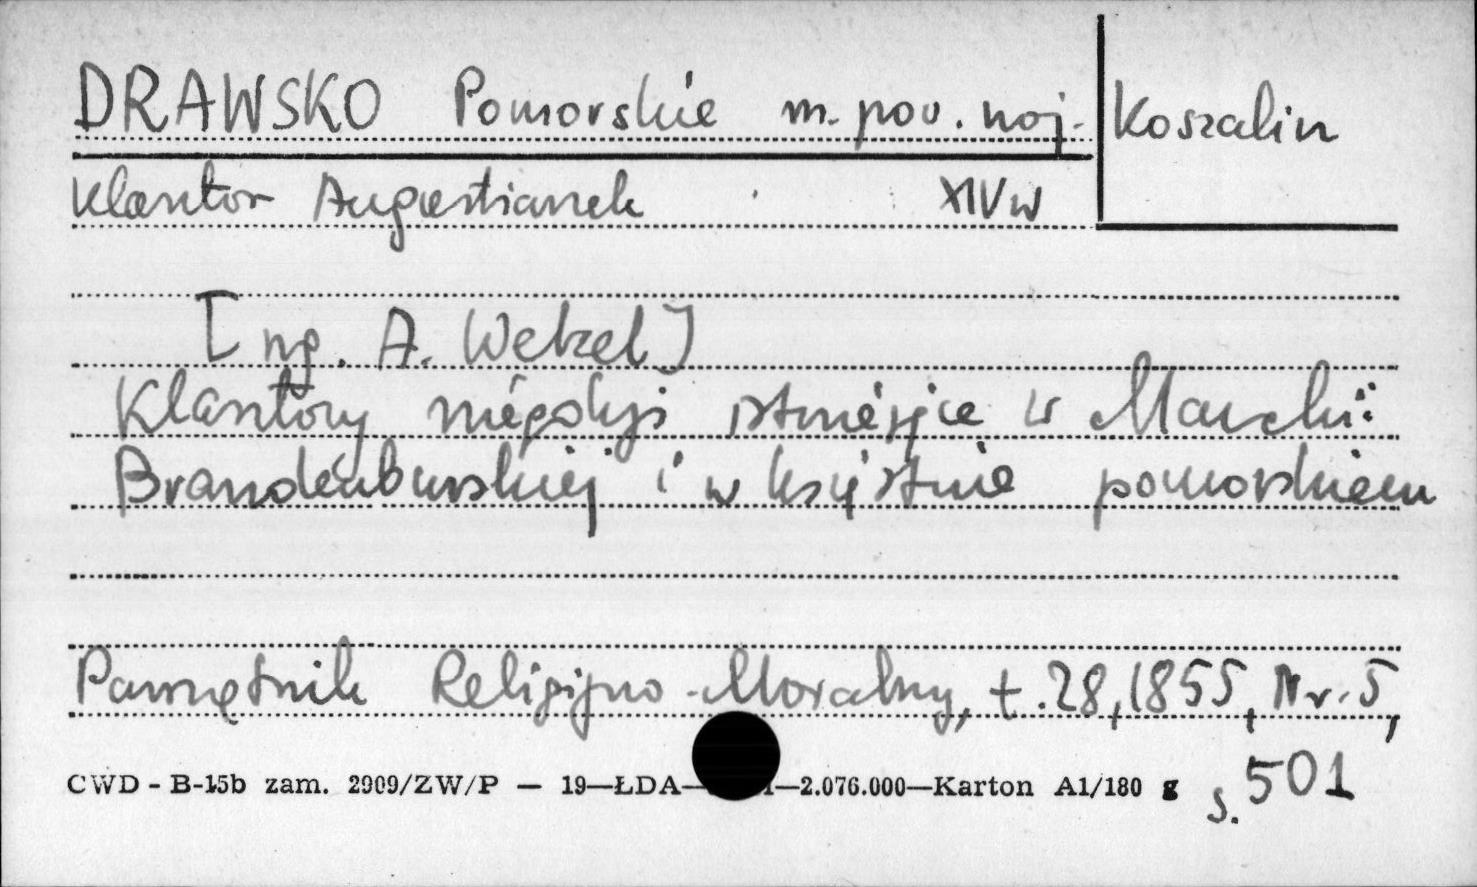 DRAWSKO Pomorskie m. pow. woj. Koszalin
Klasztor Augustianek XIV w
[wg. A. Wetzel]
Klasztory niegdyś istniejące w Marchii
Brandenburskiej i w księstwie pomorskiem
Pamiętnik Religijno-Moralny, t. 28, 1855, Nr. 5,
s. 501
CWD - B-15b zam. 2909/ZW/P — 19—ŁDA— —2.076.000—Karton A1/180 g